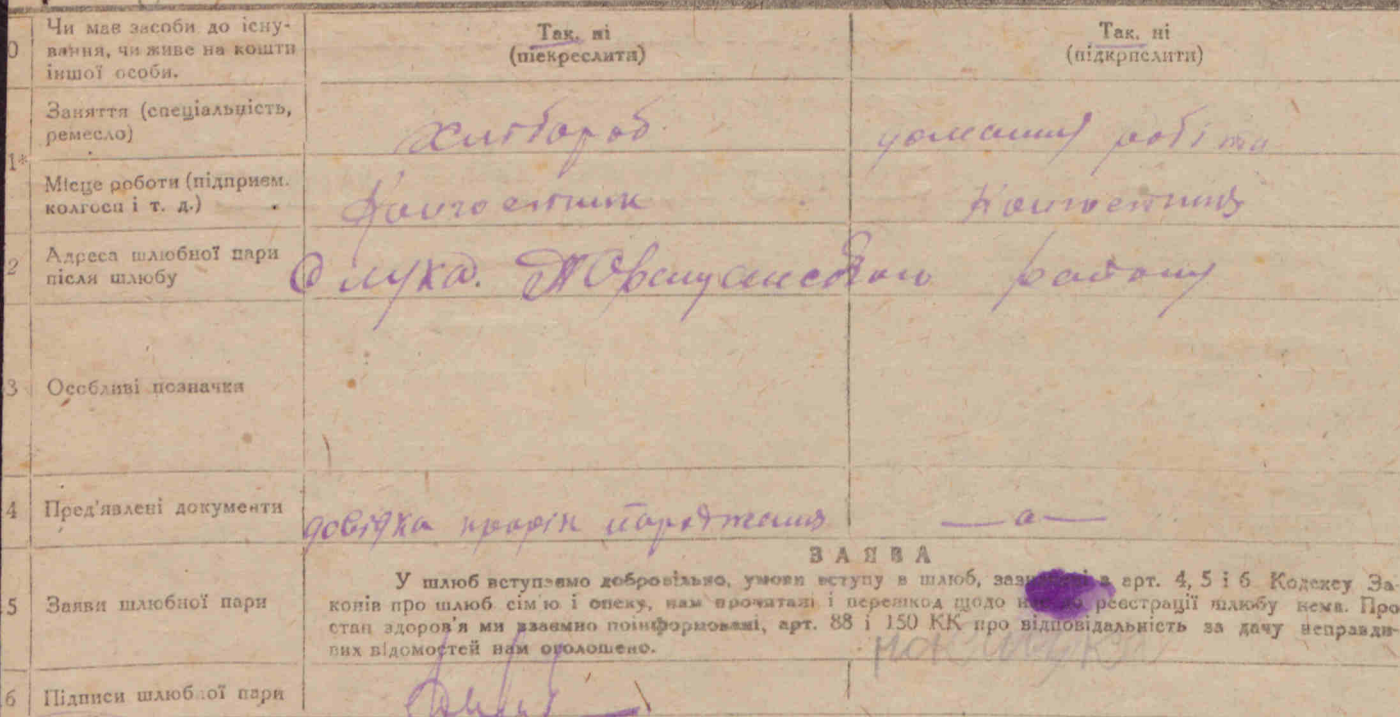 0 Чи має засоби до існу-
вання, чи живе на кошти
іншої особи.
Так, ні
(піекреслити)
Так, ні
(підкрпслити)
1* Заняття (спеціальність,
ремесло)
Хлібороб
домашня робітн
Місце роботи (підприєм.
колгосп і т. д.)
Колгоспник
Колгоспниця
2 Адреса шлюбної пари
після шлюбу
с лука. району
3 Особливі позначки
4 Пред'явлені документи
довідка про рік народження
—а—
5 Заяви шлюбної пари
ЗАЯВА
У шлюб вступаємо добровільно, умови вступу в шлюб, арт. 4, 5 і 6 Кодексу За-
конів про шлюб сім'ю і опеку, нам прочитані і перешкод щодо реєстрації шлюбу нема. Про
стан здоров'я ми взаємно поінформовані, арт. 88 і 150 КК про відповідальність за дачу неправди-
вих відомостей нам оголошено.
6 Підписи шлюбної пари